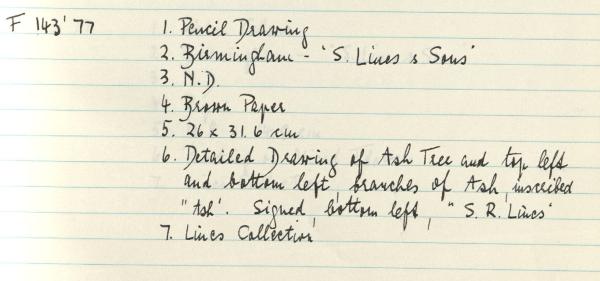 F 143'77
1. Pencil Drawing
2. Birmingham - 'S. Lines & Sons'
3. N.D.
4. Brown Paper
5. 26 x 31.6 cm
6. Detailed Drawing of Ash Tree and top left
and bottom left, branches of Ash, inscribed
"Ash'. Signed, bottom left, "S. R. Lines'
7. Lines Collection